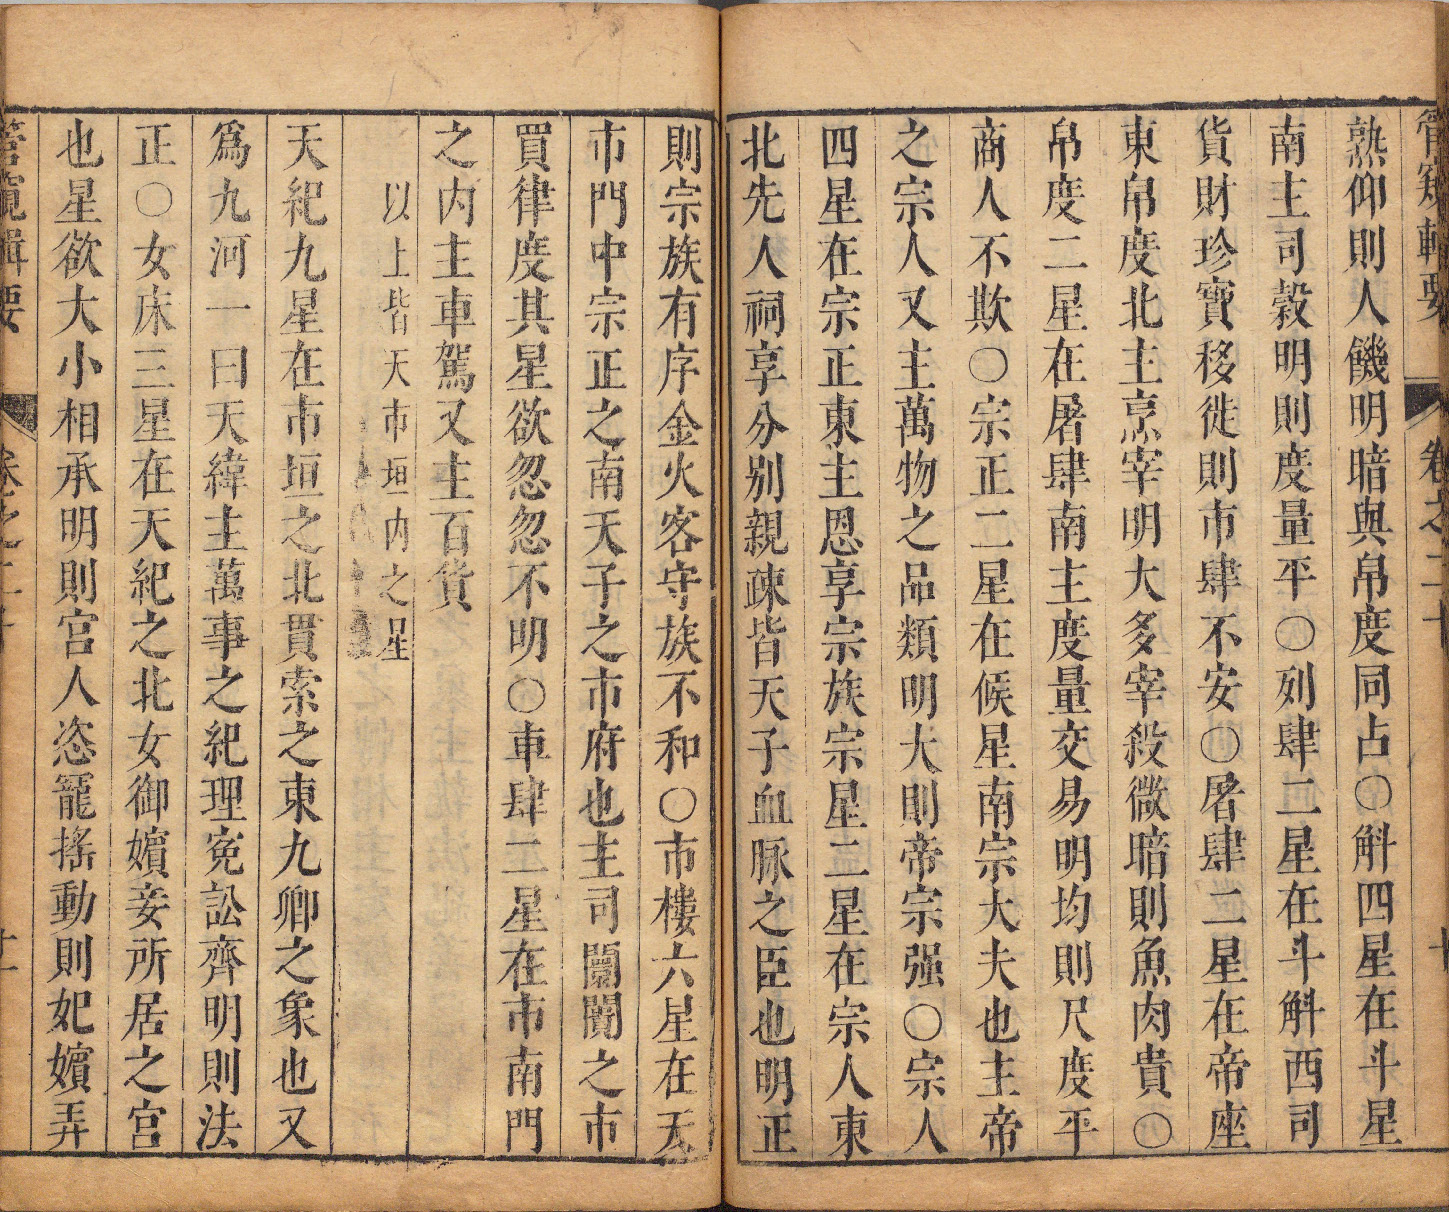 管窺輯要 卷之二十 十
熟仰則人饑明暗與帛度同占○斛四星在斗星
南主司穀明則度量平○列肆二星在斗斛西司
貨財珍寶移徙則市肆不安○屠肆二星在帝座
東帛度北主烹宰明大多宰殺微暗則魚肉貴○
帛度二星在屠肆南主度量交易明均則尺度平
商人不欺○宗正二星在候星南宗大夫也主帝
之宗人又主萬物之品類明大則帝宗强○宗人
四星在宗正東主恩享宗族宗星二星在宗人東
北先人祠享分別親疎皆天子血脉之臣也明正
則宗族有序金火客守族不和○市樓六星在天
市門中宗正之南天子之市府也主司闤闠之市
買律度其星欲忽忽不明○車肆二星在市南門
之内主車駕又主百貨
以上皆天市垣内之星
天紀九星在市垣之北貫索之東九卿之象也又
爲九河一曰天緯主萬事之紀理寃訟齊明則法
正○女床三星在天紀之北女御嬪妾所居之宮
也星欲大小相承明則宮人恣寵搖動則妃嬪弄
管窺輯要 卷之二十 十一